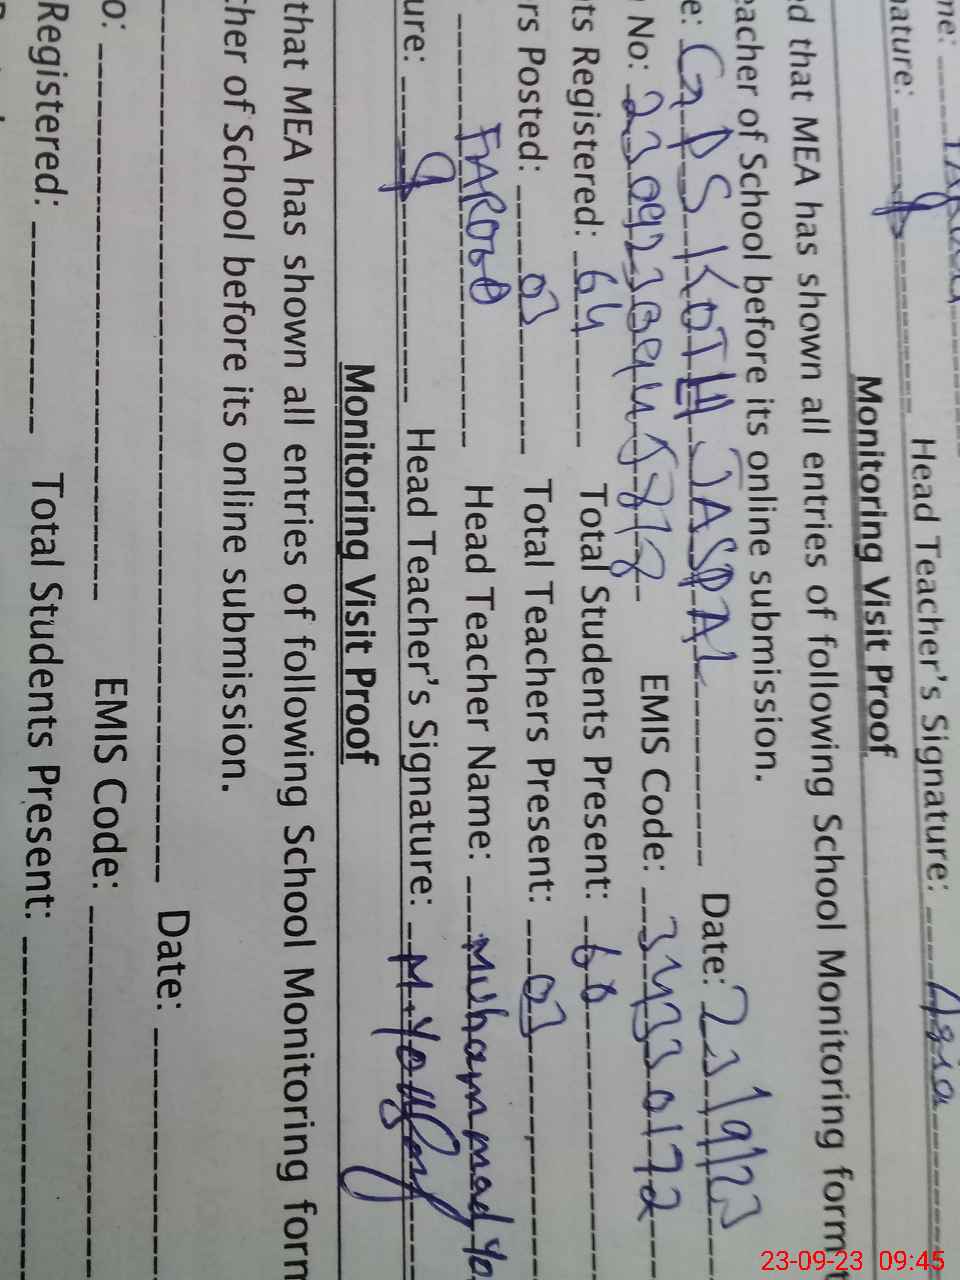 me:
nature: Head Teacher's Signature: Asia
Monitoring Visit Proof
ed that MEA has shown all entries of following School Monitoring form
eacher of School before its online submission.
e: GPS KOTH JASPAL Date: 23/9/23
No: EMIS Code:
ts Registered: 64 Total Students Present: 60
rs Posted: 03 Total Teachers Present: 03
FAROOQ Head Teacher Name: Muhammad
ure: Head Teacher's Signature: M.
Monitoring Visit Proof
that MEA has shown all entries of following School Monitoring form
cher of School before its online submission.
Date:
o: EMIS Code:
Registered: Total Students Present:
23-09-23 09:45